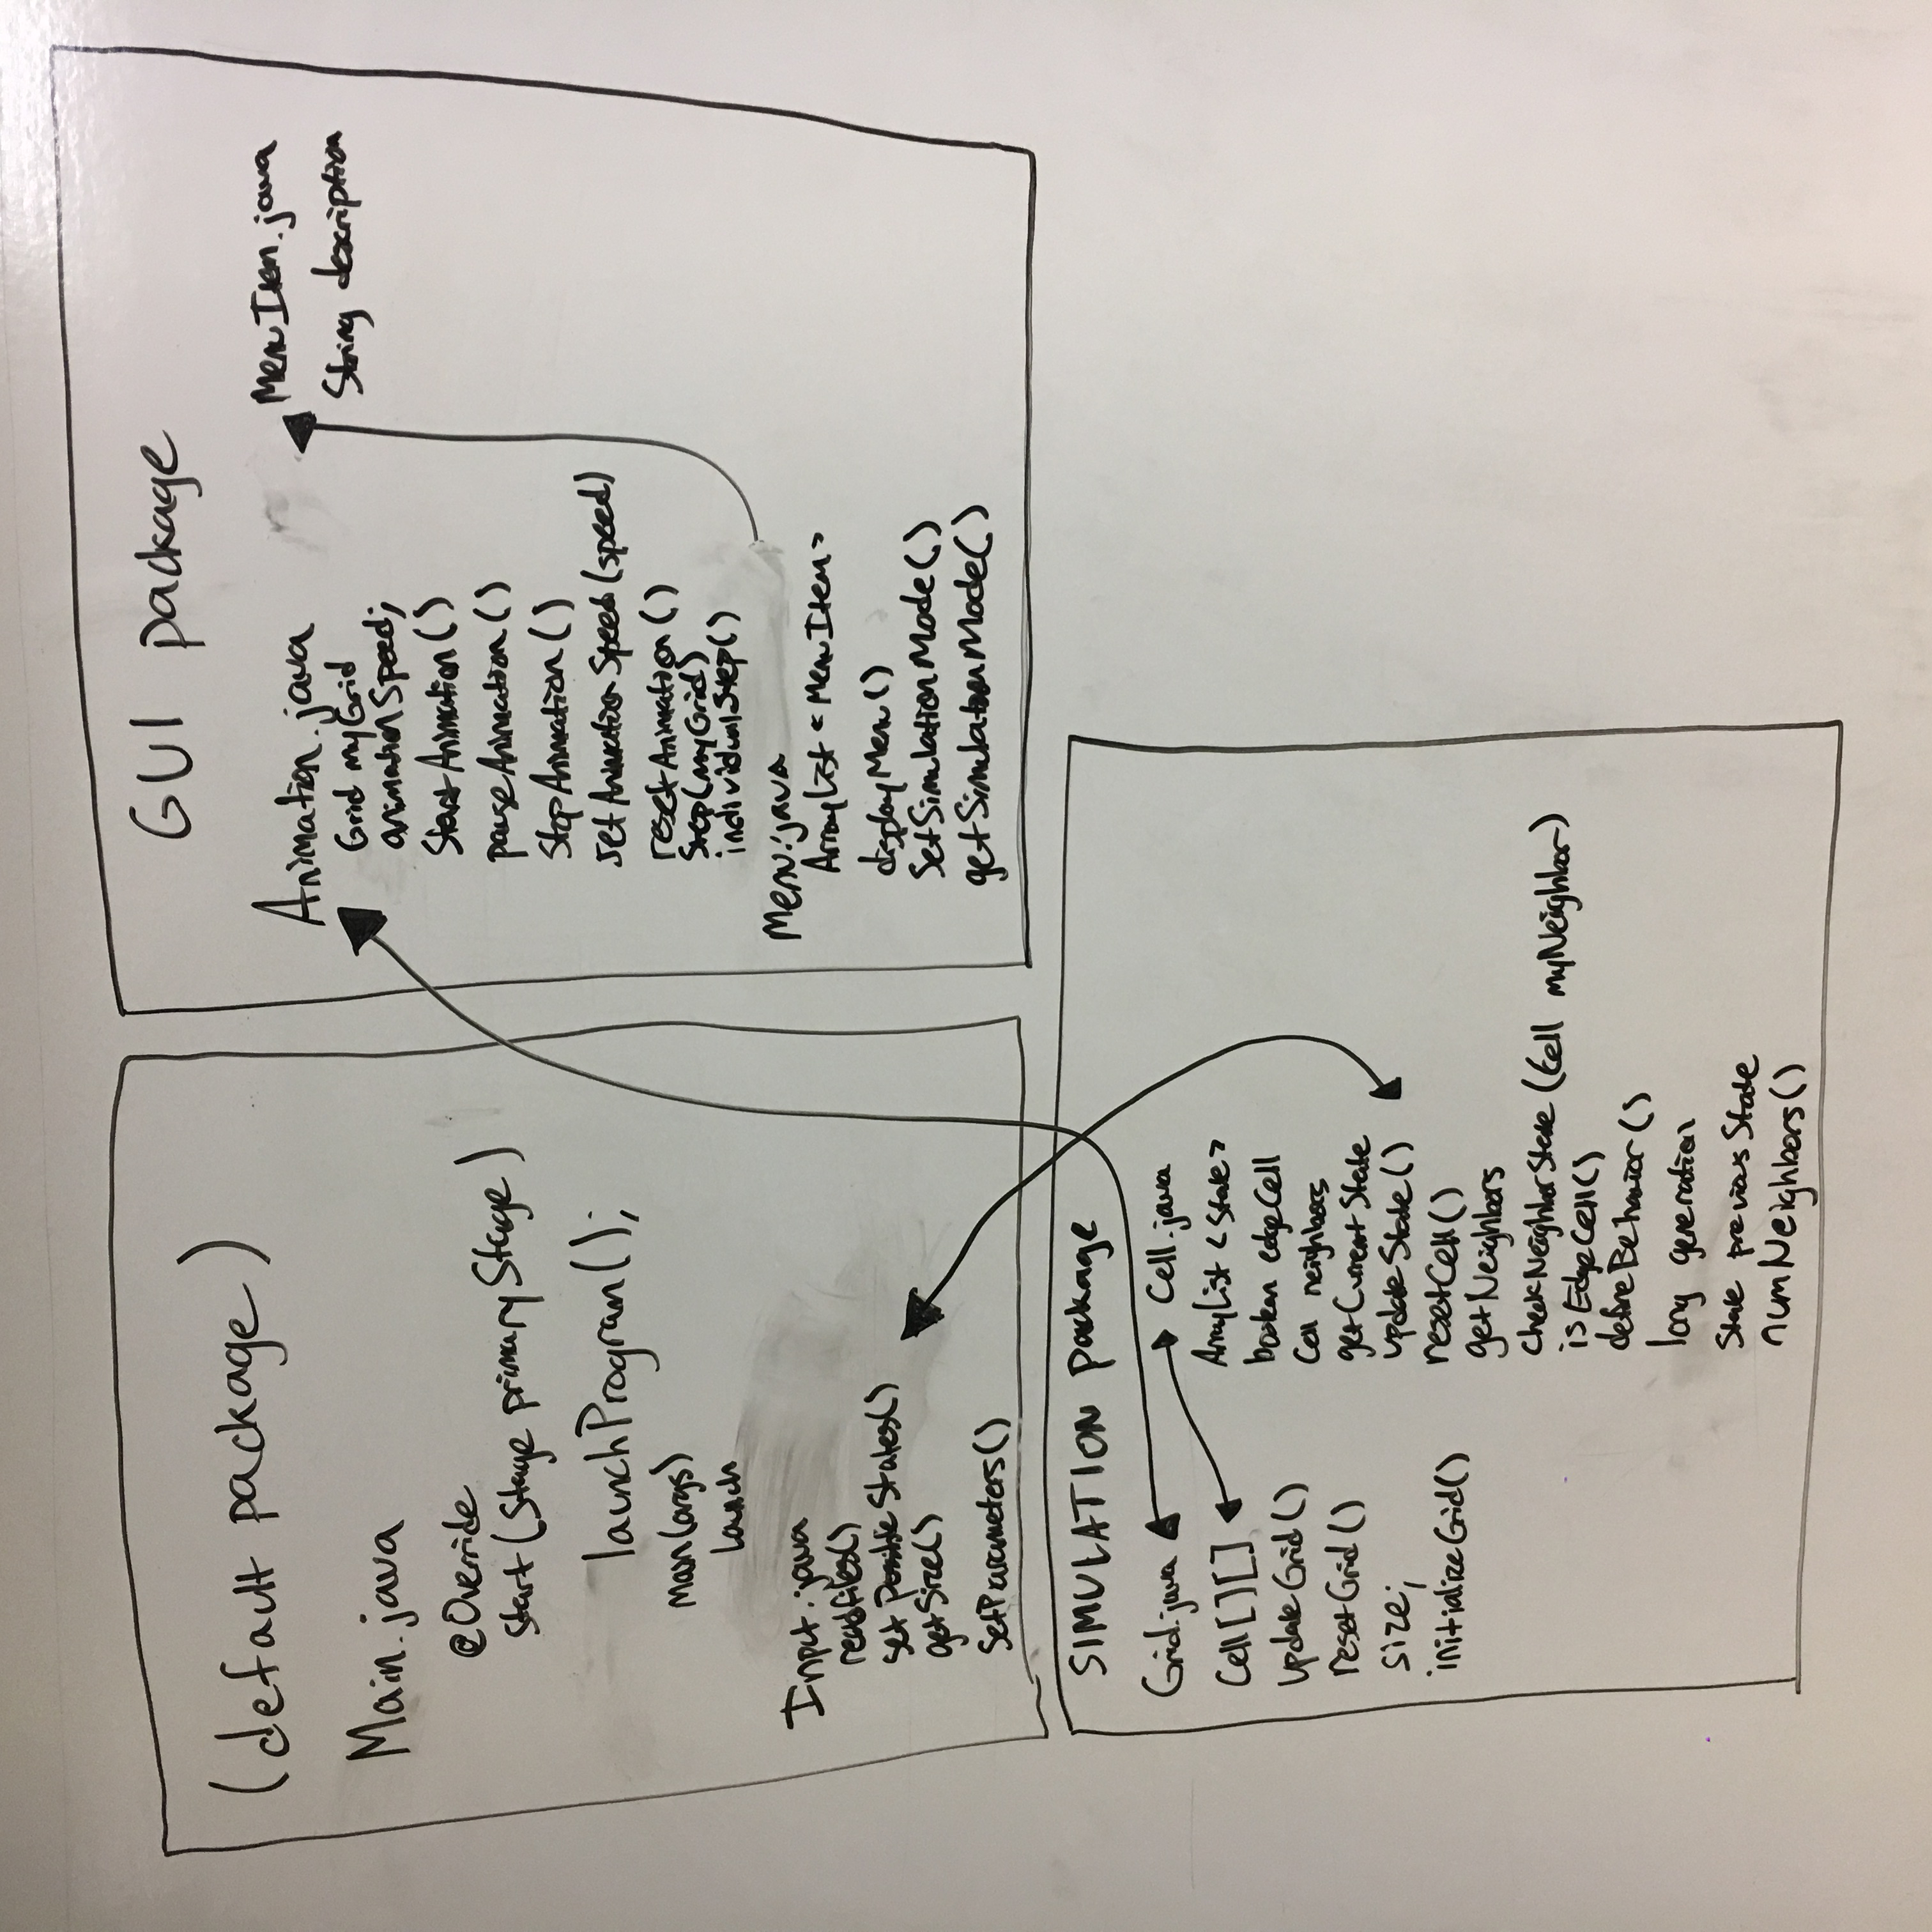 (default package)
Main.java
@Override
start(Stage primaryStage)
launchProgram();
main(args)
launch
Input.java
readfiles()
set Possible States()
getSize()
SetParameters()
GUI package
Animation.java
Grid myGrid
animationSpeed;
StartAnimation()
pauseAnimation()
StopAnimation()
setAnimationSpeed(speed)
resetAnimation()
Step(myGrid)
individualStep()
Menu.java
ArrayList <MenuItem>
displayMenu()
SetSimulationMode()
getSimulationMode()
MenuItem.java
String description
SIMULATION package
Grid.java
Cell[][]
updateGrid()
resetGrid()
size;
initializeGrid()
Cell.java
ArrayList <State>
boolean edgeCell
Cell neighbors
getCurrentState
updateState()
resetCell()
getNeighbors
checkNeighborState(Cell myNeighbor)
isEdgeCell()
defineBehavior()
long generation
State previousState
numNeighbors()